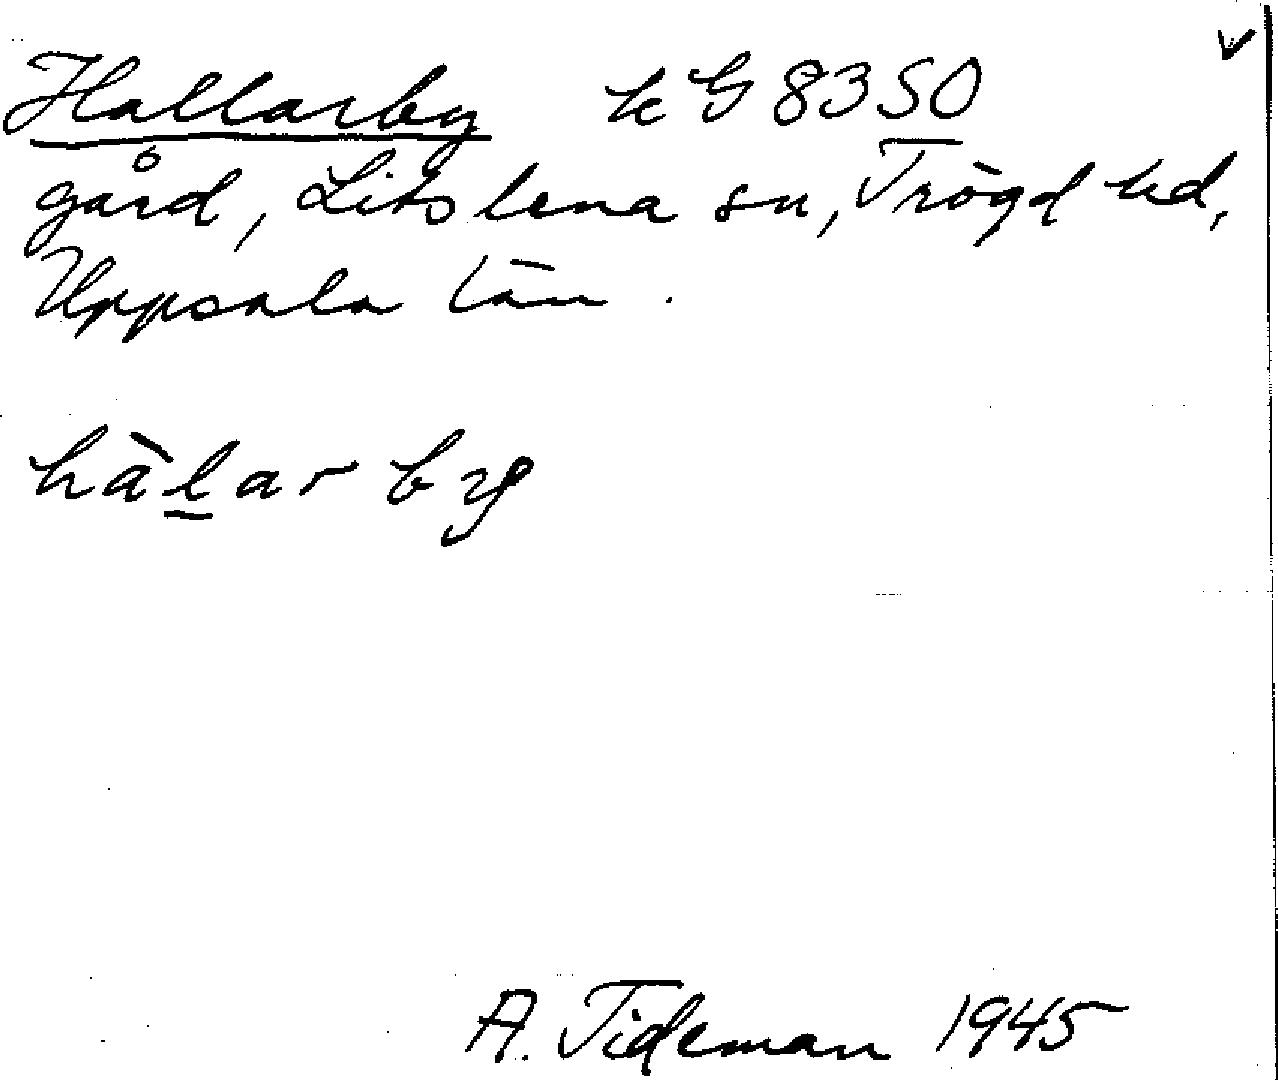 Hallarby k G 8350
gård, Litslena sn, Trögd hd,
Uppsala län.
hàl̲arby
A. Tideman 1945